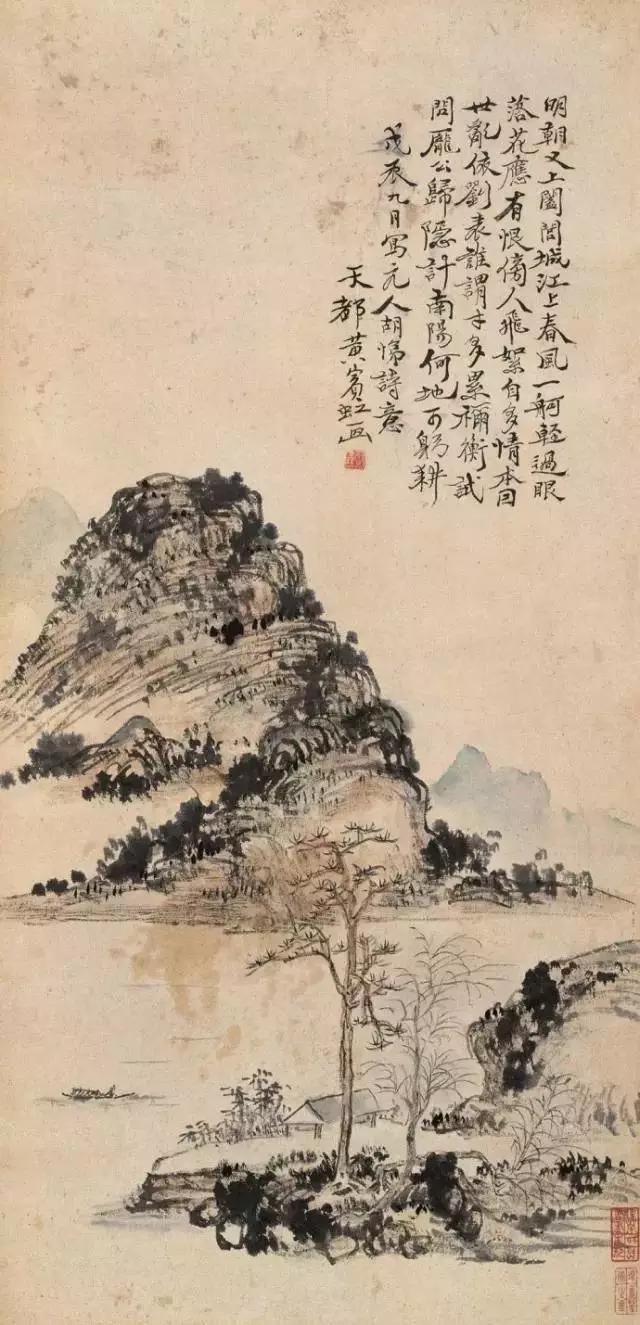 明朝又上闔閭城江上春風一舸輕過眼
落花應有恨傍人飛絮自多情本因
世亂依劉表誰謂才多累禰衡試
問龐公歸隱計南陽何地可躬耕
戊辰九月寫元人胡詩意
天都黃賓虹画